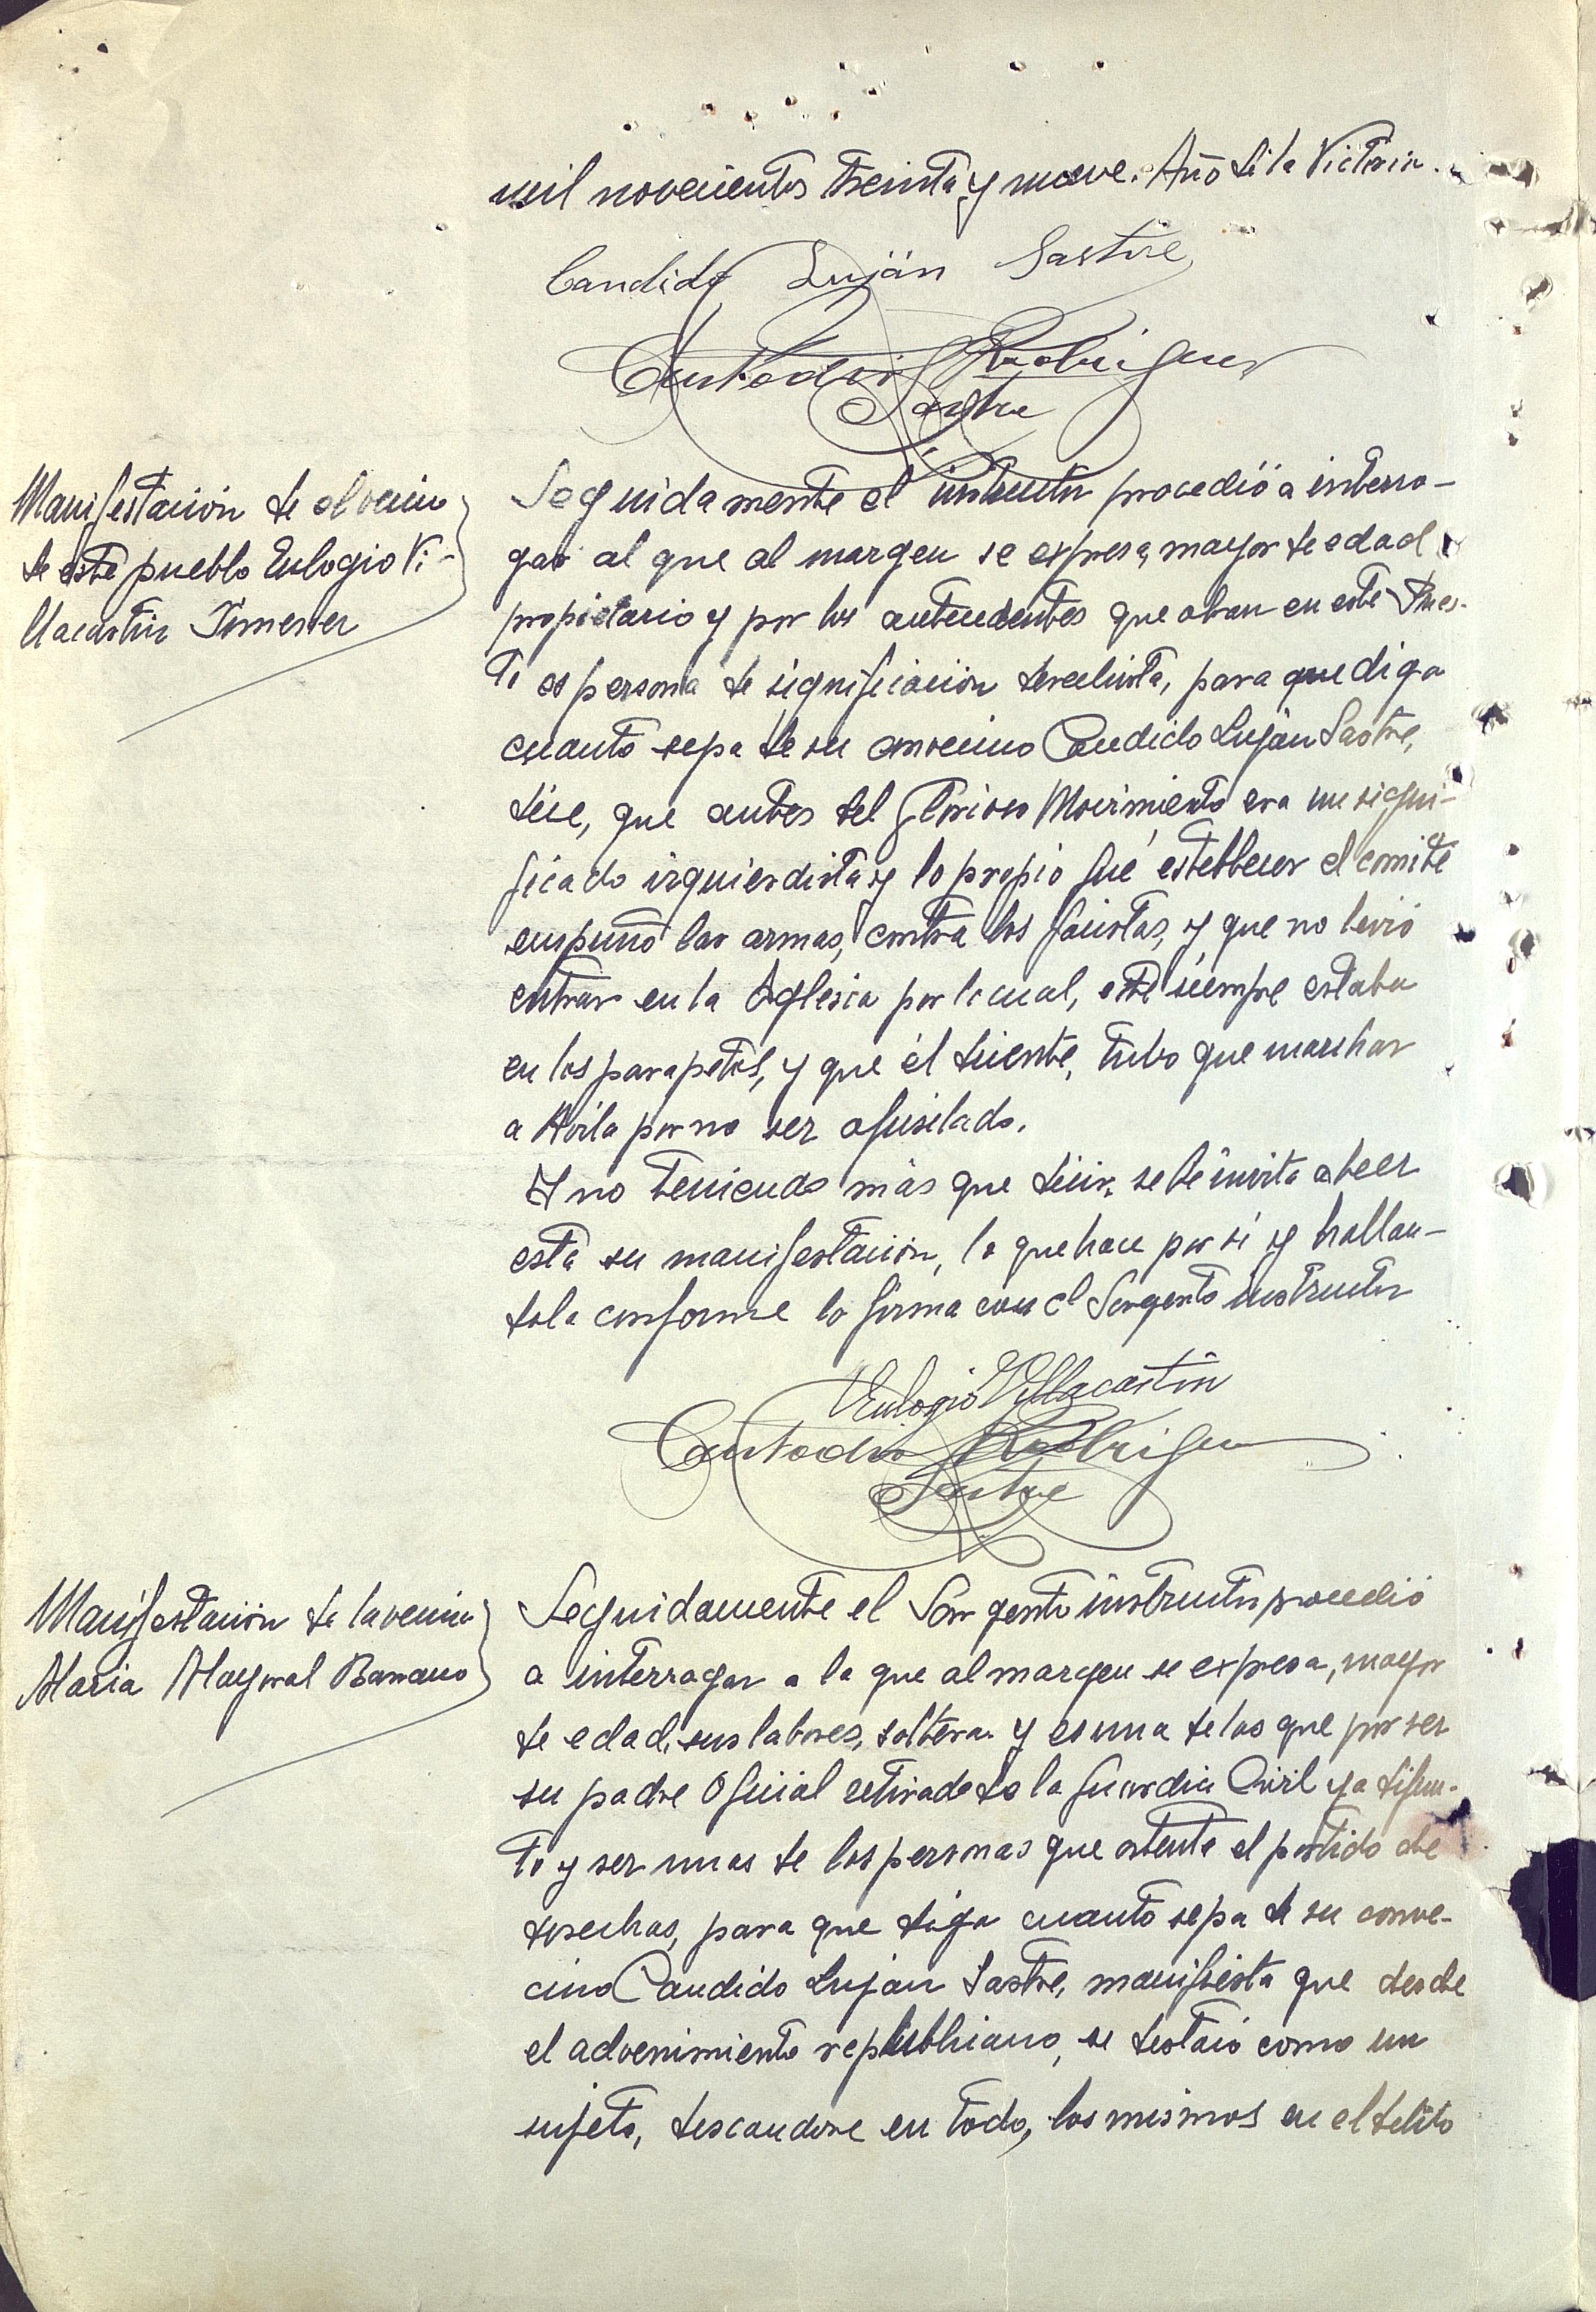 mil novecientos treinta y nueve. Año de la Victoria.
Candido Luján Sastre
Custodio Rodriguez
Sastre
Manifestación de el vecino
de este pueblo Eulogio Vi-
llacastin
Seguidamente el instructor procedió a interro-
gar al que al margen se expresa, mayor de edad
propietario y por los antecedentes que obran en este Pues-
to es persona de significación derechista, para que diga
cuanto sepa de su convecino Candido Luján Sastre,
dice, que antes del Glorioso Movimiento era un signi-
ficado izquierdista y lo propio fué establecer el comité
empuño las armas, contra los facistas, y que no le vió
entrar en la Iglesia por lo cual, este siempre estaba
en los parapetos, y que el diciente, tubo que marchar
a Avila por no ser afusilado.
Y no teniendo más que decir, se le invita a leer
esta su manifestación, lo que hace por si y hallan-
dola conforme lo firma con el Sargento instructor
Eulogio Villacastin
Custodio Rodriguez
Sastre
Manifestación de la vecina
Maria Mayoral
Seguidamente el Sargento instructor procedió
a interrogar a la que al margen se expresa, mayor
de edad, sus labores, soltera y es una de las que por ser
su padre Oficial retirado de la Guardia Civil ya difun-
to y ser unas de las personas que ostenta el partido de
derechas, para que diga cuanto sepa de su conve-
cino Candido Luján Sastre, manifiesta que desde
el advenimiento republicano, se destacó como un
sujeto, en todo, los mismos en el delito